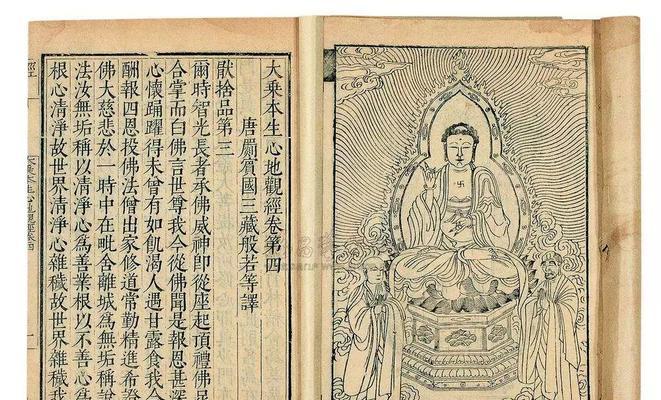 大乘本生心地觀經卷第四
唐罽賓國三藏般若等譯
猒捨品第三
爾時智光長者承佛威神即從座起頂禮佛足
合掌而白佛言世尊我今從佛聞是報恩甚深
心懷踴躍得未曾有如飢渴人遇甘露食我今
酬報四恩投佛法僧出家修道常勤精進希證
佛大慈悲於一時中在毗舍離城爲無垢稱說
法汝無垢稱以清淨心爲善業根以不善心爲
根心清淨故世界清淨心雜穢故世界雜穢我
經
大乘本生心地觀經卷四